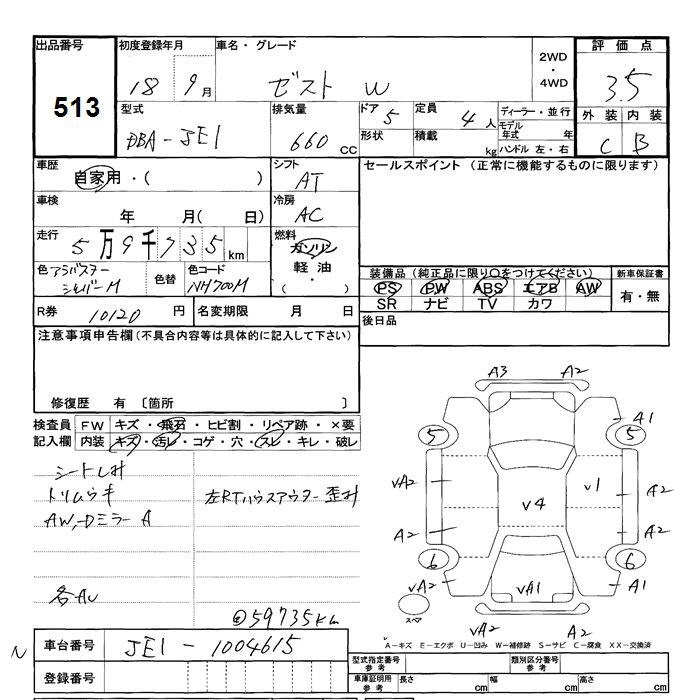 出品番号
513
初度登録年月
18 9月
車名・グレード
ゼスト W
2WD
・
4WD
評価点
3.5
外装 内装
C B
型式
DBA-JE1
排気量
660 CC
ドア 5
形状
定員 4人
積載 kg
ディーラー・並行
モデル年式 年
ハンドル 左・右
車歴
自家用・( )
シフト
AT
セールスポイント (正常に機能するものに限ります)
車検
年 月( 日)
冷房
AC
走行
5万9千735km
燃料
ガソリン
軽油
・
( )
色 アラバスターシルバーM
色替
色コード
NH700M
装備品 (純正品に限り○をつけてください)
PS PW ABS エアB AW
SR ナビ TV カワ
新車保証書
有・無
R券 10120 円
名変期限 月 日
後日品
注意事項申告欄(不具合内容等は具体的に記入して下さい)
修復歴 有 〔箇所 〕
検査員記入欄
FW キズ・飛石・ヒビ割・リペア跡・×要
内装 キズ・汚レ・コゲ・穴・スレ・キレ・破レ
シートしみ
トリムウキ
AW,-Dミラー A
左RTハウスアウター歪み
各AU
59735km
A3 A2
A1
5 5
VA2 V1 A2
V4
A2 A2
6 6
VA2 VA1 A1
スペア
VA2 A2
A-キズ E-エクボ U-凹み W-補修跡 S-サビ C-腐食 XX-交換済
N
車台番号 JE1-1004615
登録番号
型式指定番号
参考
類別区分番号
参考
車庫証明用
参考
長さ cm
幅 cm
高さ cm